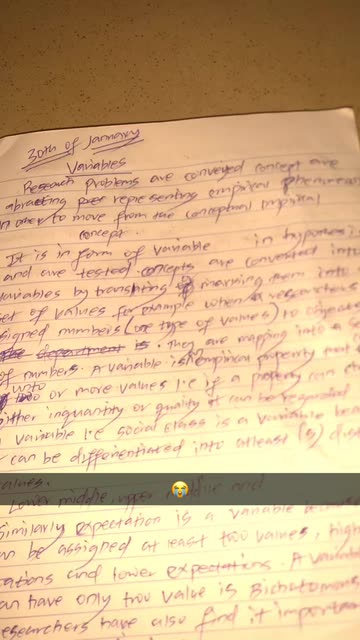 30th of January
Variables
Research problems are conveyed concept are
abracting representing empirical phenomenon
in order to move from the conceptual impirical
concept.
It is in form of variable in hypothesis
and are tested. concepts are converted into
variables by translating marning them into
set of values for example when a researchers
signed numbers (one type of values) to objects
department is. They are mapping into a
of numbers. A variable is empirical property that
unto
two or more values i.e if a property can
either inquantity or quality it can be regarded
a variable i.e social class is a variable
can be differentiated into atleast (5)
values.
Lower middle, upper middle and
😭
Similarly expectation is a variable because
can be assigned at least two values, high
and lower expectations. A variable
can have only two value is Bichotomous
researchers have also find it important